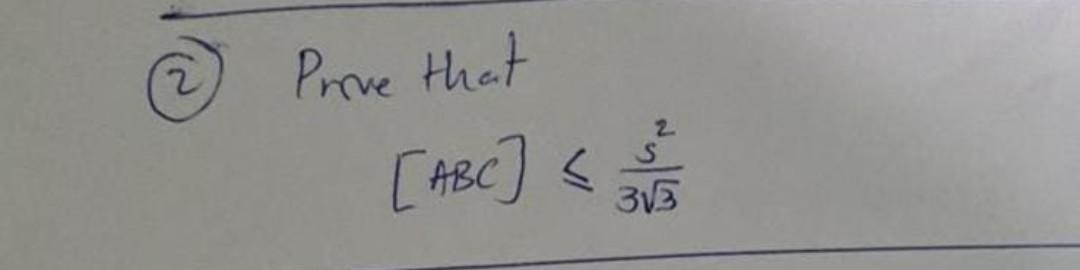 ② Prove that
[ABC] ≤ s² / 3√3